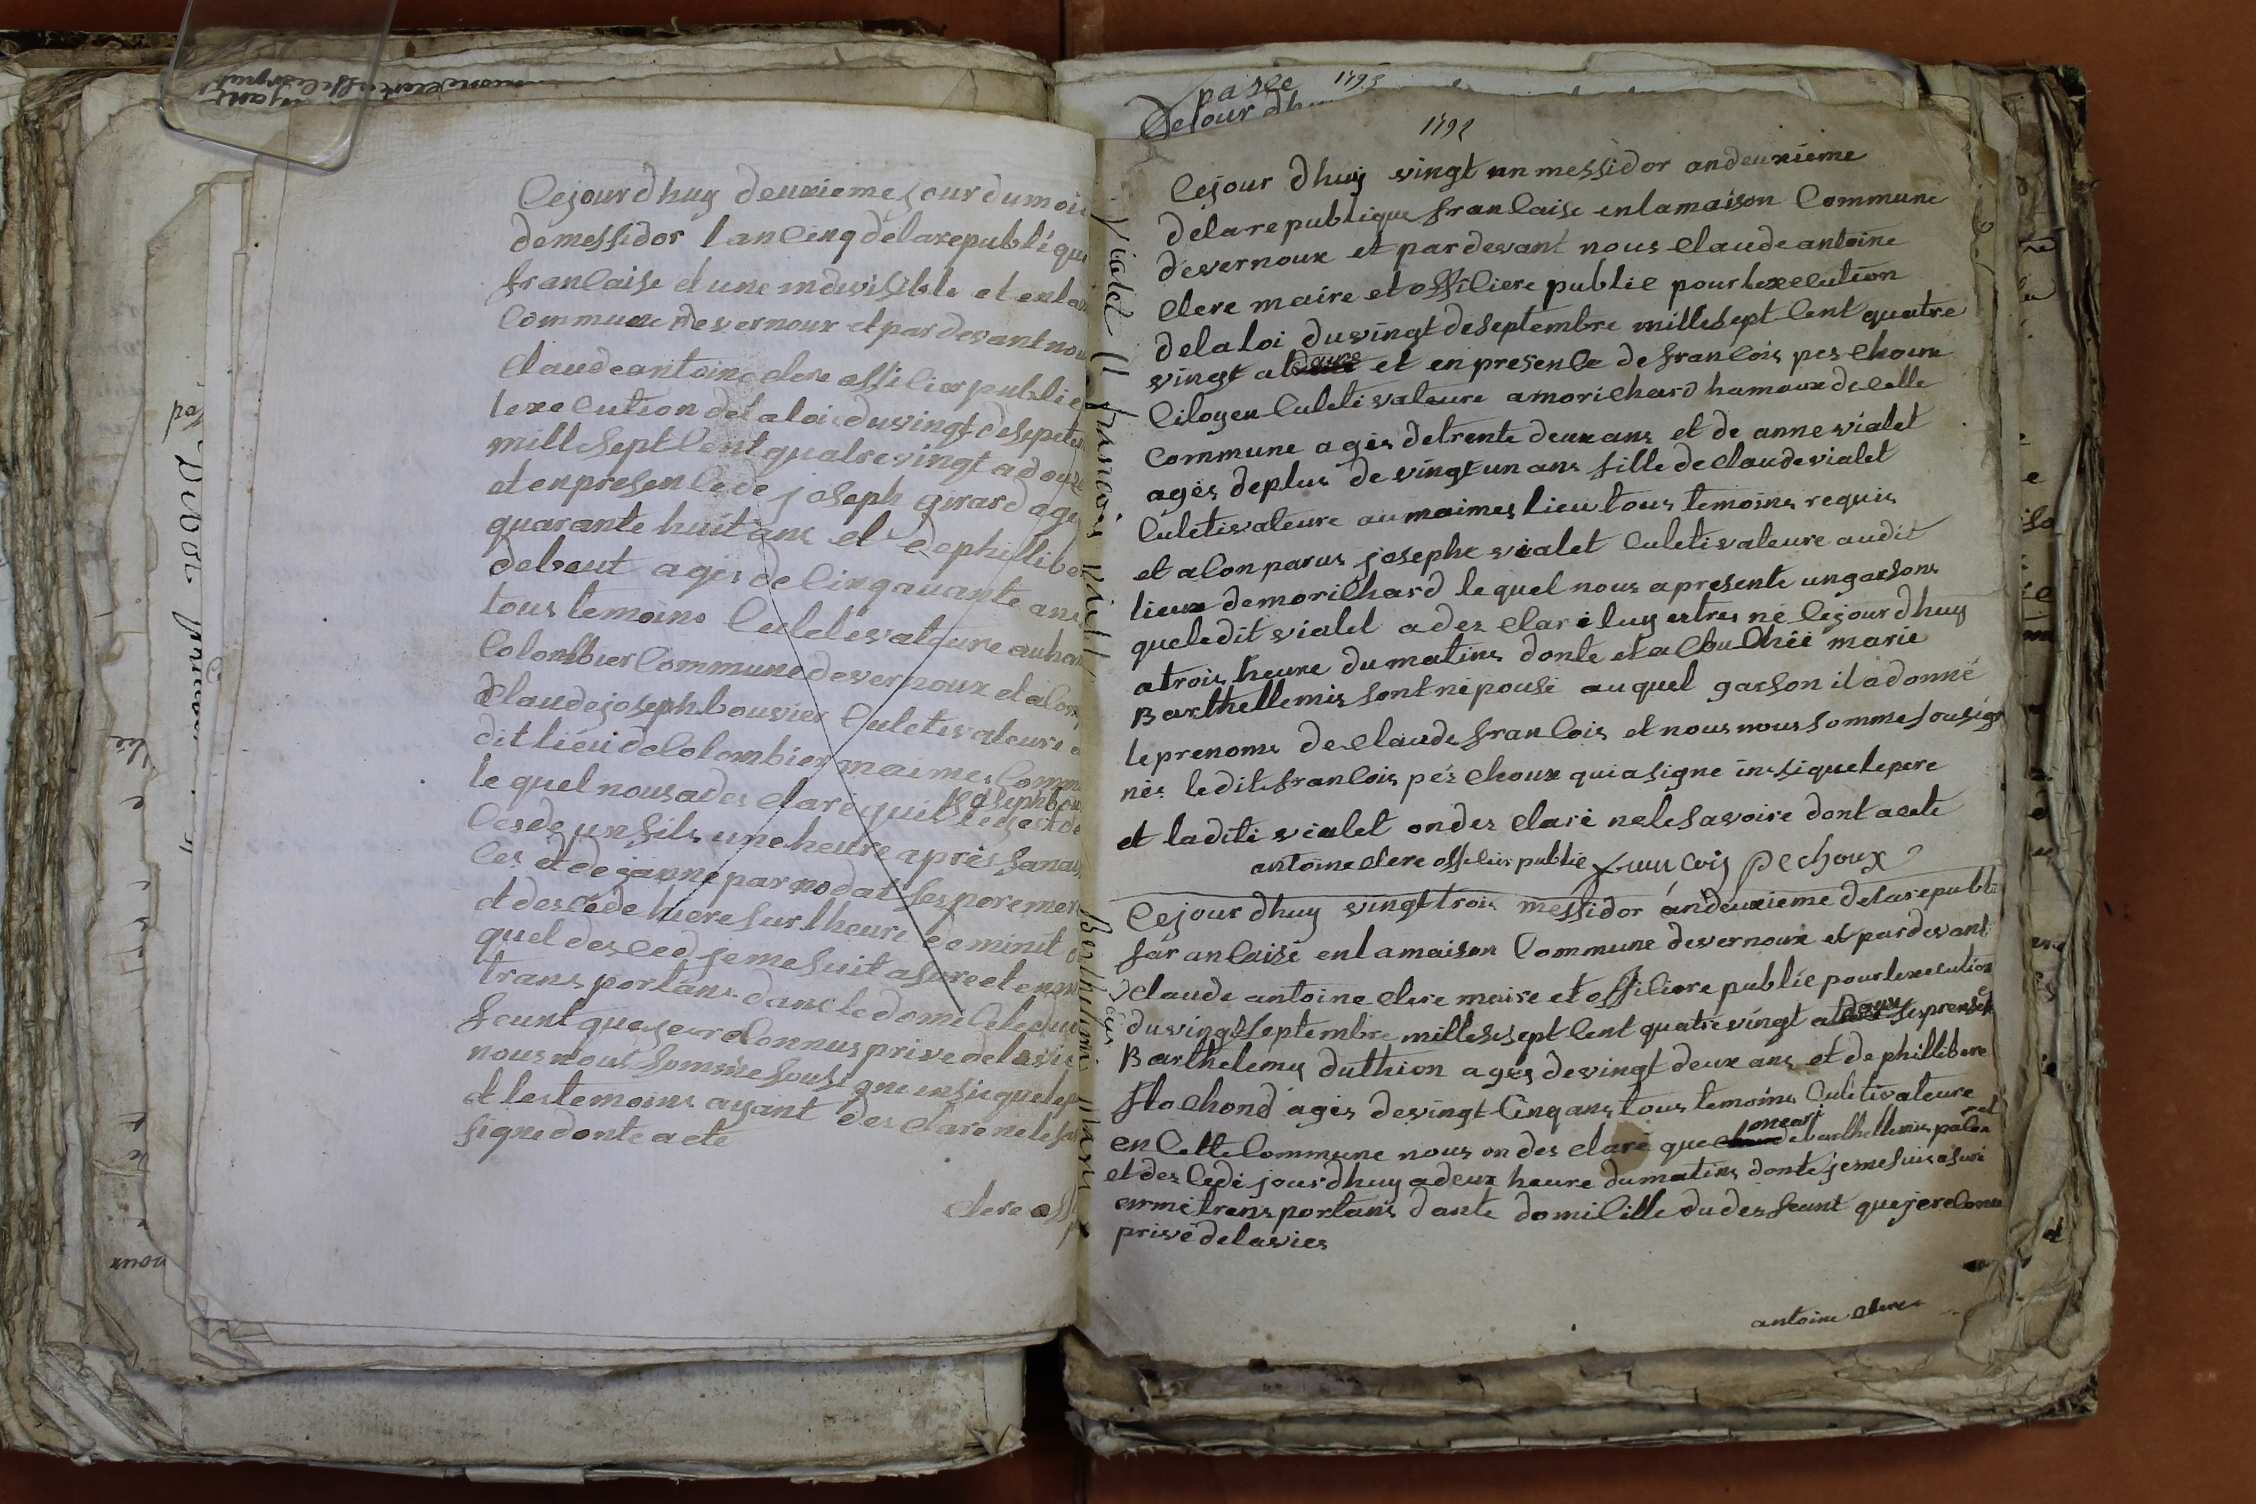 Cejourdhuy deuxieme jour dumois
demessidor lancinq delarepublique
francaise etune indivisible et enla
Commune devernoux et pardevant nou
claudeantoine clere officier public
lexecution delaloi duvingt deseptem
mill sept Cent quatrevingt adouze
et enpresencede joseph girard age
quarante huit ans et dephilliber
debout ages de Cinquante ans
tous temoins Culetivateure auham
Colombier Commune devernoux et alon
Claudejoseph bouvier Culetivateure
dit lieu de Colombier maimes Comm
le quel nousades clare quil
joseph bou
Cesde un fils une heure apres sanai
Ces et de janne parrodat ses pere mere
et descede hiere sur lheure de minit
quel des Ced je me suit asure et en m
trans portans dans le domicile du
feunt que je reconnus prive de la vie
nous nous somme sousigne insique le p
et les temoins ayant desclare ne le sa
signe donte acte
clere off
pasee 1793
Cejour dhu
1792
Cejour dhuy vingt un messidor an deuxieme
delarepublique francaise enlamaison Commune
devernoux et pardevant nous claude antoine
clere maire et officiere public pour lexecution
delaloi du vingt deseptembre mille sept Cent quatre
vingt a douze et en presence de francois peschoux
Citoyen Culetivateure amorichard hamaux de cette
Commune ages detrente deux ans et de anne vialet
ages deplus de vingt un ans fille de claude vialet
Culetivateure au maimes lieu tous temoins requis
et a Conparus josephe vialet Culetivateure audit
lieux demorichard le quel nous apresente ungarsons
queledit vialet a des clare luy estres né Cejourdhuy
atrois heure du matins donte et a Couchée marie
Barthellemis sont népouse au quel garson il a donné
leprenoms declaude francois et nous nous somme sousig
nés ledit francois péschoux qui a signe insique le pere
et ladite vialet ondes claré ne le savoire dont acte
antoine clere officier public francois pechoux
Cejour dhuy vingt trois messidor andeuxieme delarepubli
farancaise en lamaison Commune devernoux et pardevant
claude antoine clere maire et officiere public pour lexecution
du vingt septembre mille sept Cent quatre vingt a douze
Barthelemy duthion ages devingt deux ans et de phillibere
flochond ages de vingt Cinq ans tous temoins Culetivateure
en Cette Commune nous on des claré que barthellemis
et des Cede jourdhuy a deux heure du matins donte je me suis asuré
en me trens portans dante domicille du desfeunt que je reConu
privé delavies
antoine clere
Vialet Claude francois né